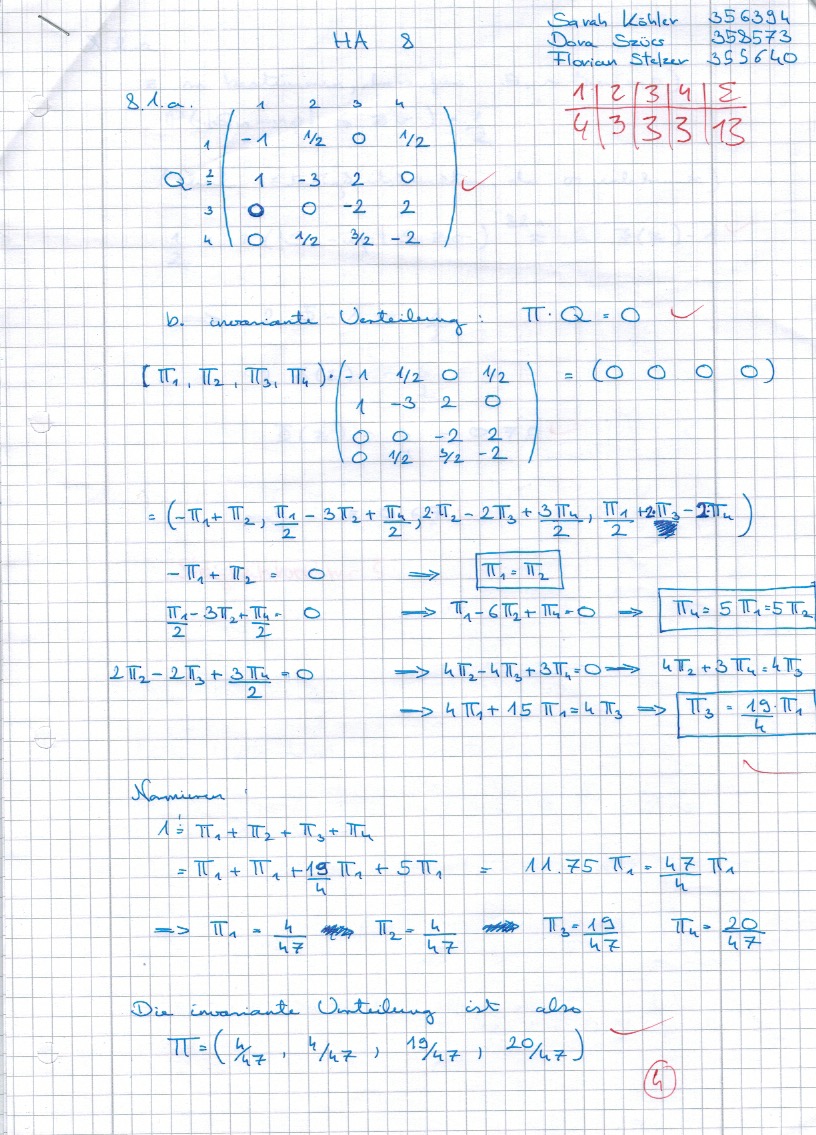 Sarah Köhler 356394
HA 8 Dora Szücs 358573
Florian Stelzer 355640
1 2 3 4 Σ
4 3 3 3 13
8.1.a. 1 2 3 4
1 -1 1/2 0 1/2
Q = 2 1 -3 2 0
3 0 0 -2 2
4 0 1/2 3/2 -2
b. invariante Verteilung: π · Q = 0
(π₁, π₂, π₃, π₄) · ( -1 1/2 0 1/2 ) = (0 0 0 0)
1 -3 2 0
0 0 -2 2
0 1/2 3/2 -2
= (-π₁ + π₂, π₁/2 - 3π₂ + π₄/2, 2·π₂ - 2π₃ + 3π₄/2, π₁/2 + 2·π₃ - 2·π₄)
-π₁ + π₂ = 0 ⟹ π₁ = π₂
π₁/2 - 3π₂ + π₄/2 = 0 ⟹ π₁ - 6π₂ + π₄ = 0 ⟹ π₄ = 5π₁ = 5π₂
2π₂ - 2π₃ + 3π₄/2 = 0 ⟹ 4π₂ - 4π₃ + 3π₄ = 0 ⟹ 4π₂ + 3π₄ = 4π₃
⟹ 4π₁ + 15π₁ = 4π₃ ⟹ π₃ = 19/4 · π₁
Normieren:
1 != π₁ + π₂ + π₃ + π₄
= π₁ + π₁ + 19/4 π₁ + 5π₁ = 11.75 π₁ = 47/4 π₁
=> π₁ = 4/47 π₂ = 4/47 π₃ = 19/47 π₄ = 20/47
Die invariante Verteilung ist also
π = (4/47, 4/47, 19/47, 20/47)
4